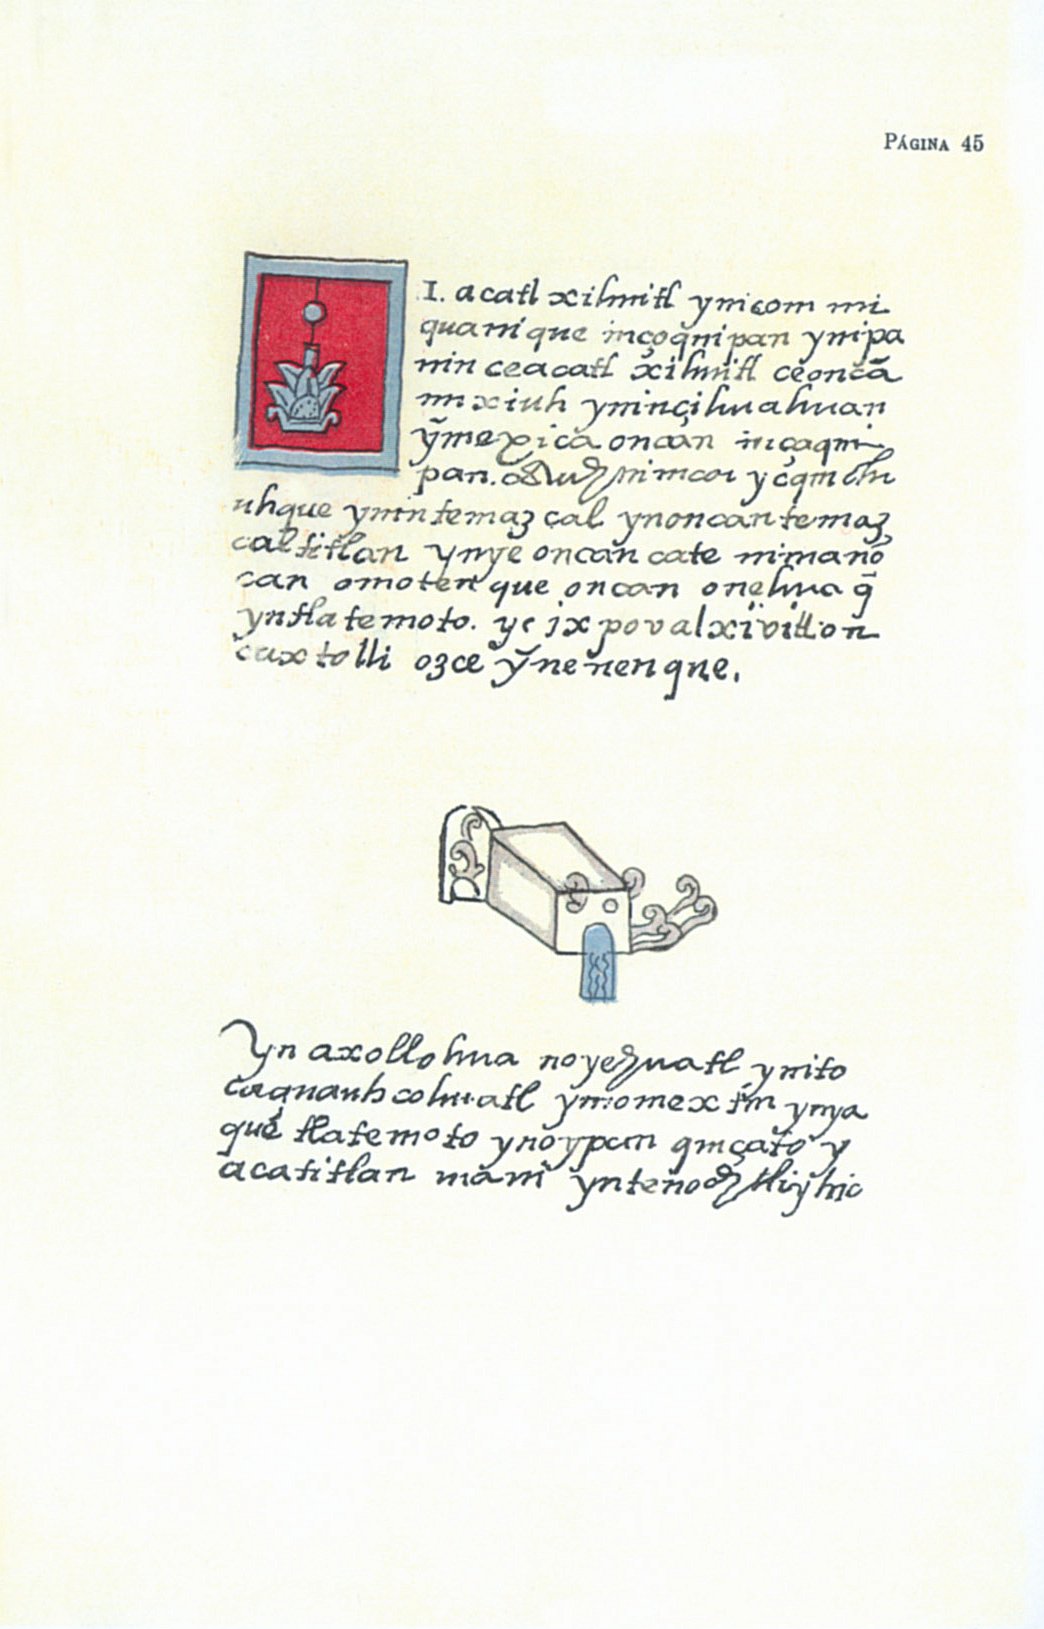 Página 45
1. acatl xihuitl ynicom mi
quanique inçoq̃nipan ynipa
nin ceacatl xihuitl ceoncã
nn xiuh ynincihuahuan
ỹmexica oncan inçaqni
pan. auh nimcoı ycqmchi
uhque ynintemazcal ynoncantemaz
caltitlan ynye oncan cate nimanõ
can omotenque oncan onehua q̃
yntlatemoto. yc ix povalxivitl on
caxtolli ozce ỹnenenque.
Yn axollohua noyehuatl ynito
caquauhcohuatl ynomextin ynya
que tlatemoto ynoypan qniçato y
acatitlan mani yntenochtliyhic